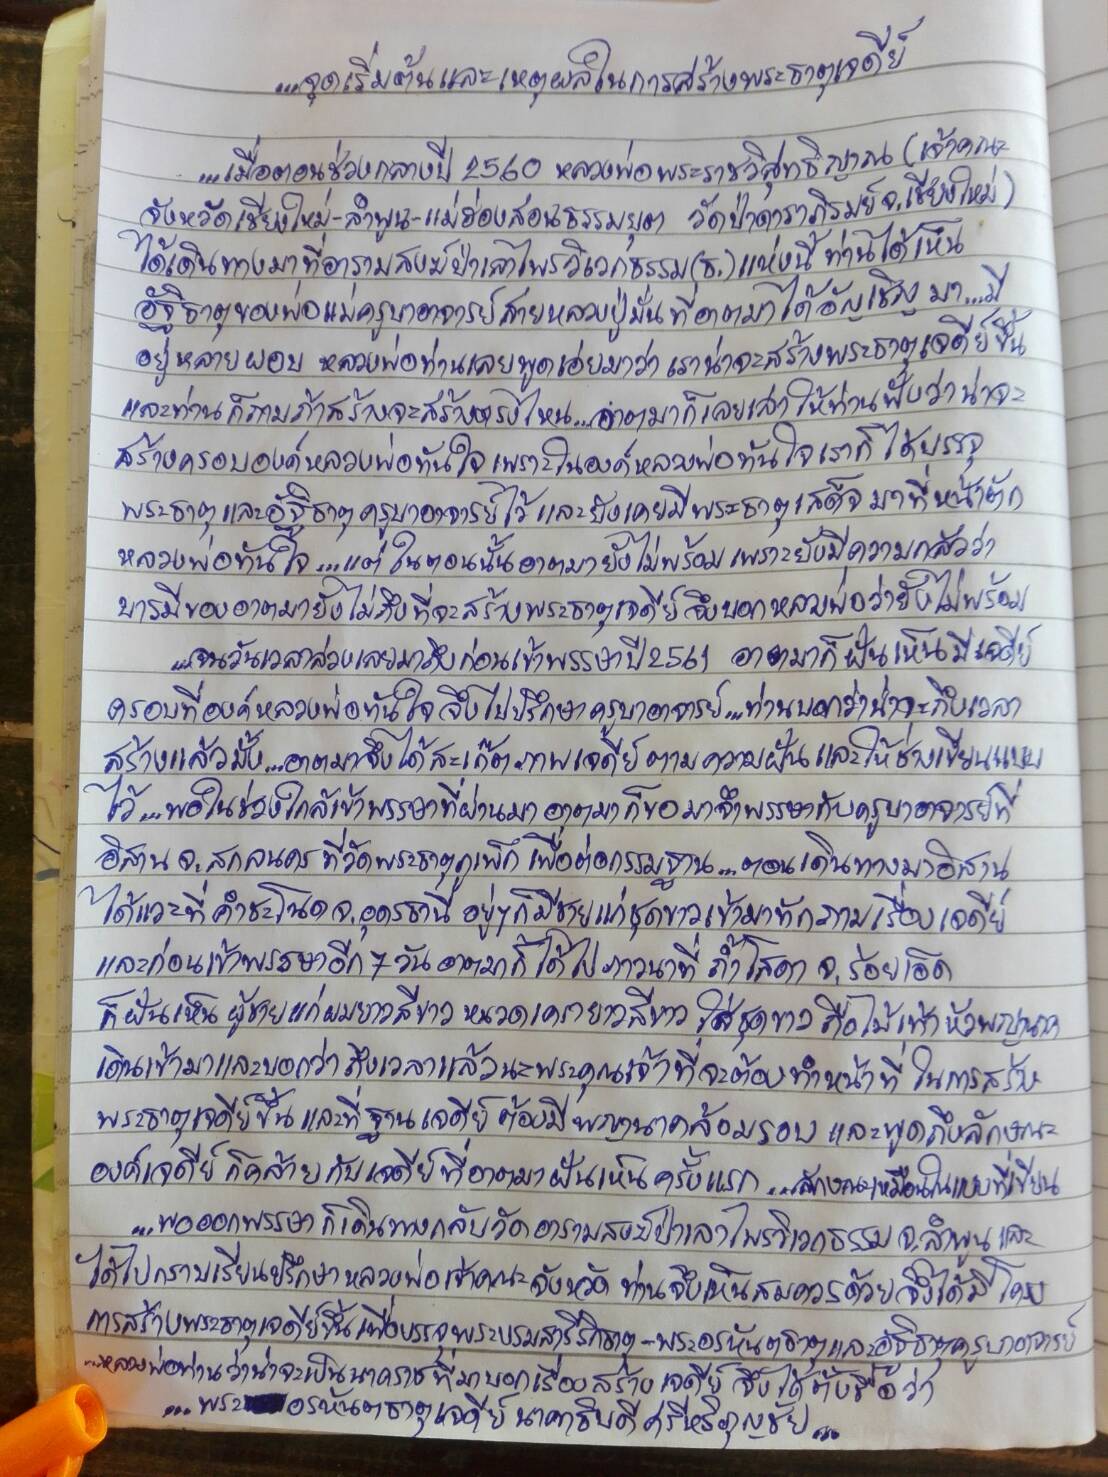 ...จุดเริ่มต้นและเหตุผลในการสร้างพระธาตุเจดีย์
...เมื่อตอนช่วงกลางปี 2560 หลวงพ่อพระราชวิสุทธิญาณ (เจ้าคณะ
จังหวัดเชียงใหม่-ลำพูน-แม่ฮ่องสอนธรรมยุต วัดป่าดาราภิรมย์ จ.เชียงใหม่)
ได้เดินทางมาที่อารามสงฆ์ป่าเลาไพรวิเวกธรรม(ธ.)แห่งนี้ ท่านได้เห็น
อัฐิธาตุของพ่อแม่ครูบาอาจารย์สายหลวงปู่มั่น ที่อาตมาได้อัญเชิญมา...มี
อยู่หลายผอบ หลวงพ่อท่านเลยพูดเอ่ยมาว่า เราน่าจะสร้างพระธาตุเจดีย์ขึ้น
และท่านก็ถามถ้าสร้างจะสร้างตรงไหน...อาตมาก็เลยเล่าให้ท่านฟังว่าน่าจะ
สร้างครอบองค์หลวงพ่อทันใจ เพราะในองค์หลวงพ่อทันใจเราก็ได้บรรจุ
พระธาตุและอัฐิธาตุครูบาอาจารย์ไว้ และยังเคยมีพระธาตุเสด็จมาที่หน้าตัก
หลวงพ่อทันใจ...แต่ในตอนนั้นอาตมายังไม่พร้อม เพราะยังมีความกลัวว่า
บารมีของอาตมายังไม่ถึงที่จะสร้างพระธาตุเจดีย์ จึงบอกหลวงพ่อว่ายังไม่พร้อม
...จนวันเวลาล่วงเลยมาถึงก่อนเข้าพรรษาปี 2561 อาตมาก็ฝันเห็นมีเจดีย์
ครอบที่องค์หลวงพ่อทันใจ จึงไปปรึกษาครูบาอาจารย์...ท่านบอกว่าน่าจะถึงเวลา
สร้างแล้วมั้ง...อาตมาจึงได้สะเก๊ตภาพเจดีย์ตามความฝัน และให้ช่างเขียนแบบ
ไว้...พอในช่วงใกล้เข้าพรรษาที่ผ่านมา อาตมาก็ขอมาจำพรรษากับครูบาอาจารย์ที่
อิสาน จ.สกลนคร ที่วัดพระธาตุภูเพ็ก เพื่อต่อกรรมฐาน...ตอนเดินทางมาอิสาน
ได้แวะที่ คำชะโนด จ.อุดรธานี อยู่ๆก็มีชายแก่ชุดขาวเข้ามาทักถามเรื่องเจดีย์
และก่อนเข้าพรรษาอีก 7 วัน อาตมาก็ได้ไปภาวนาที่ ถ้ำโสดา จ.ร้อยเอ็ด
ก็ฝันเห็น ผู้ชายแก่ผมยาวสีขาว หนวดเครายาวสีขาว ใส่ชุดขาว ถือไม้เท้าหัวพญานาค
เดินเข้ามาและบอกว่า ถึงเวลาแล้วนะพระคุณเจ้าที่จะต้องทำหน้าที่ ในการสร้าง
พระธาตุเจดีย์ขึ้น และที่ฐานเจดีย์ ต้องมีพญานาคล้อมรอบ และพูดถึงลักษณะ
องค์เจดีย์ ก็คล้ายกับเจดีย์ที่อาตมาฝันเห็นครั้งแรก...ลักษณะเหมือนในแบบที่เขียน
...พอออกพรรษา ก็เดินทางกลับวัดอารามสงฆ์ป่าเลาไพรวิเวกธรรม จ.ลำพูน และ
ได้ไปกราบเรียนปรึกษาหลวงพ่อเจ้าคณะจังหวัด ท่านจึงเห็นสมควรด้วย จึงได้มีโครง
การสร้างพระธาตุเจดีย์ขึ้นเพื่อบรรจุพระบรมสารีริกธาตุ-พระอรหันตธาตุและอัฐิธาตุครูบาอาจารย์
...หลวงพ่อท่านว่าน่าจะเป็นนาคราชที่มาบอกเรื่องสร้างเจดีย์ จึงได้ตั้งชื่อว่า
...พระอรหันตธาตุเจดีย์ นาคาธิบดีศรีหริภุญชัย...